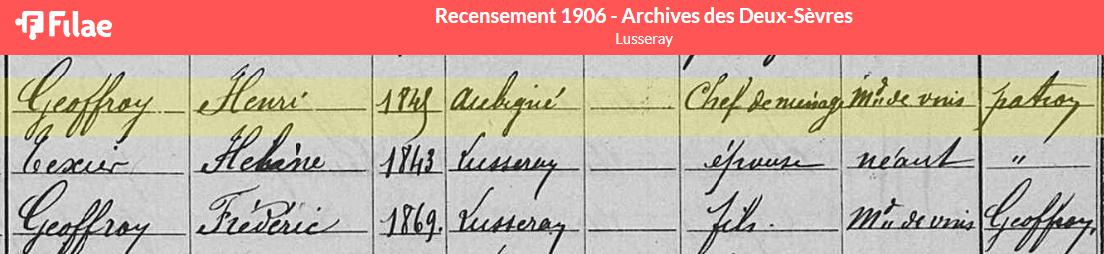 Filae
Recensement 1906 - Archives des Deux-Sèvres
Lusseray
Geoffroy Henri Aubigné Chef de ménage Md. de vins patron
Texier Hélène 1843 Lusseray épouse néant "
Geoffroy Frédéric 1869. Lusseray fils. Md. de vins Geoffroy.